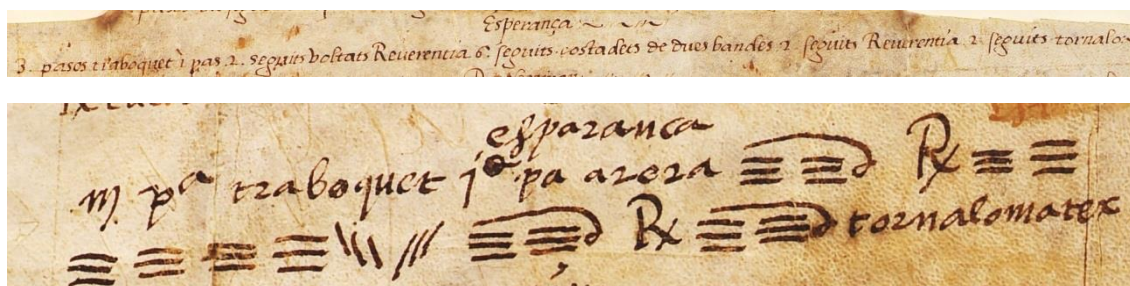 Esperança
3. pasos traboquet 1 pas 2. seguits voltats Reverencia 6. seguits costadets de dues bandes 2. seguits Reverentia 2. seguits tornalo
esparanca
m pa traboquet jo pa arora ≡ ≡ R ≡ ≡
≡ ≡ ≡ ≡ \\\ /// ≡ ≡ R ≡ ≡ tornalomatex